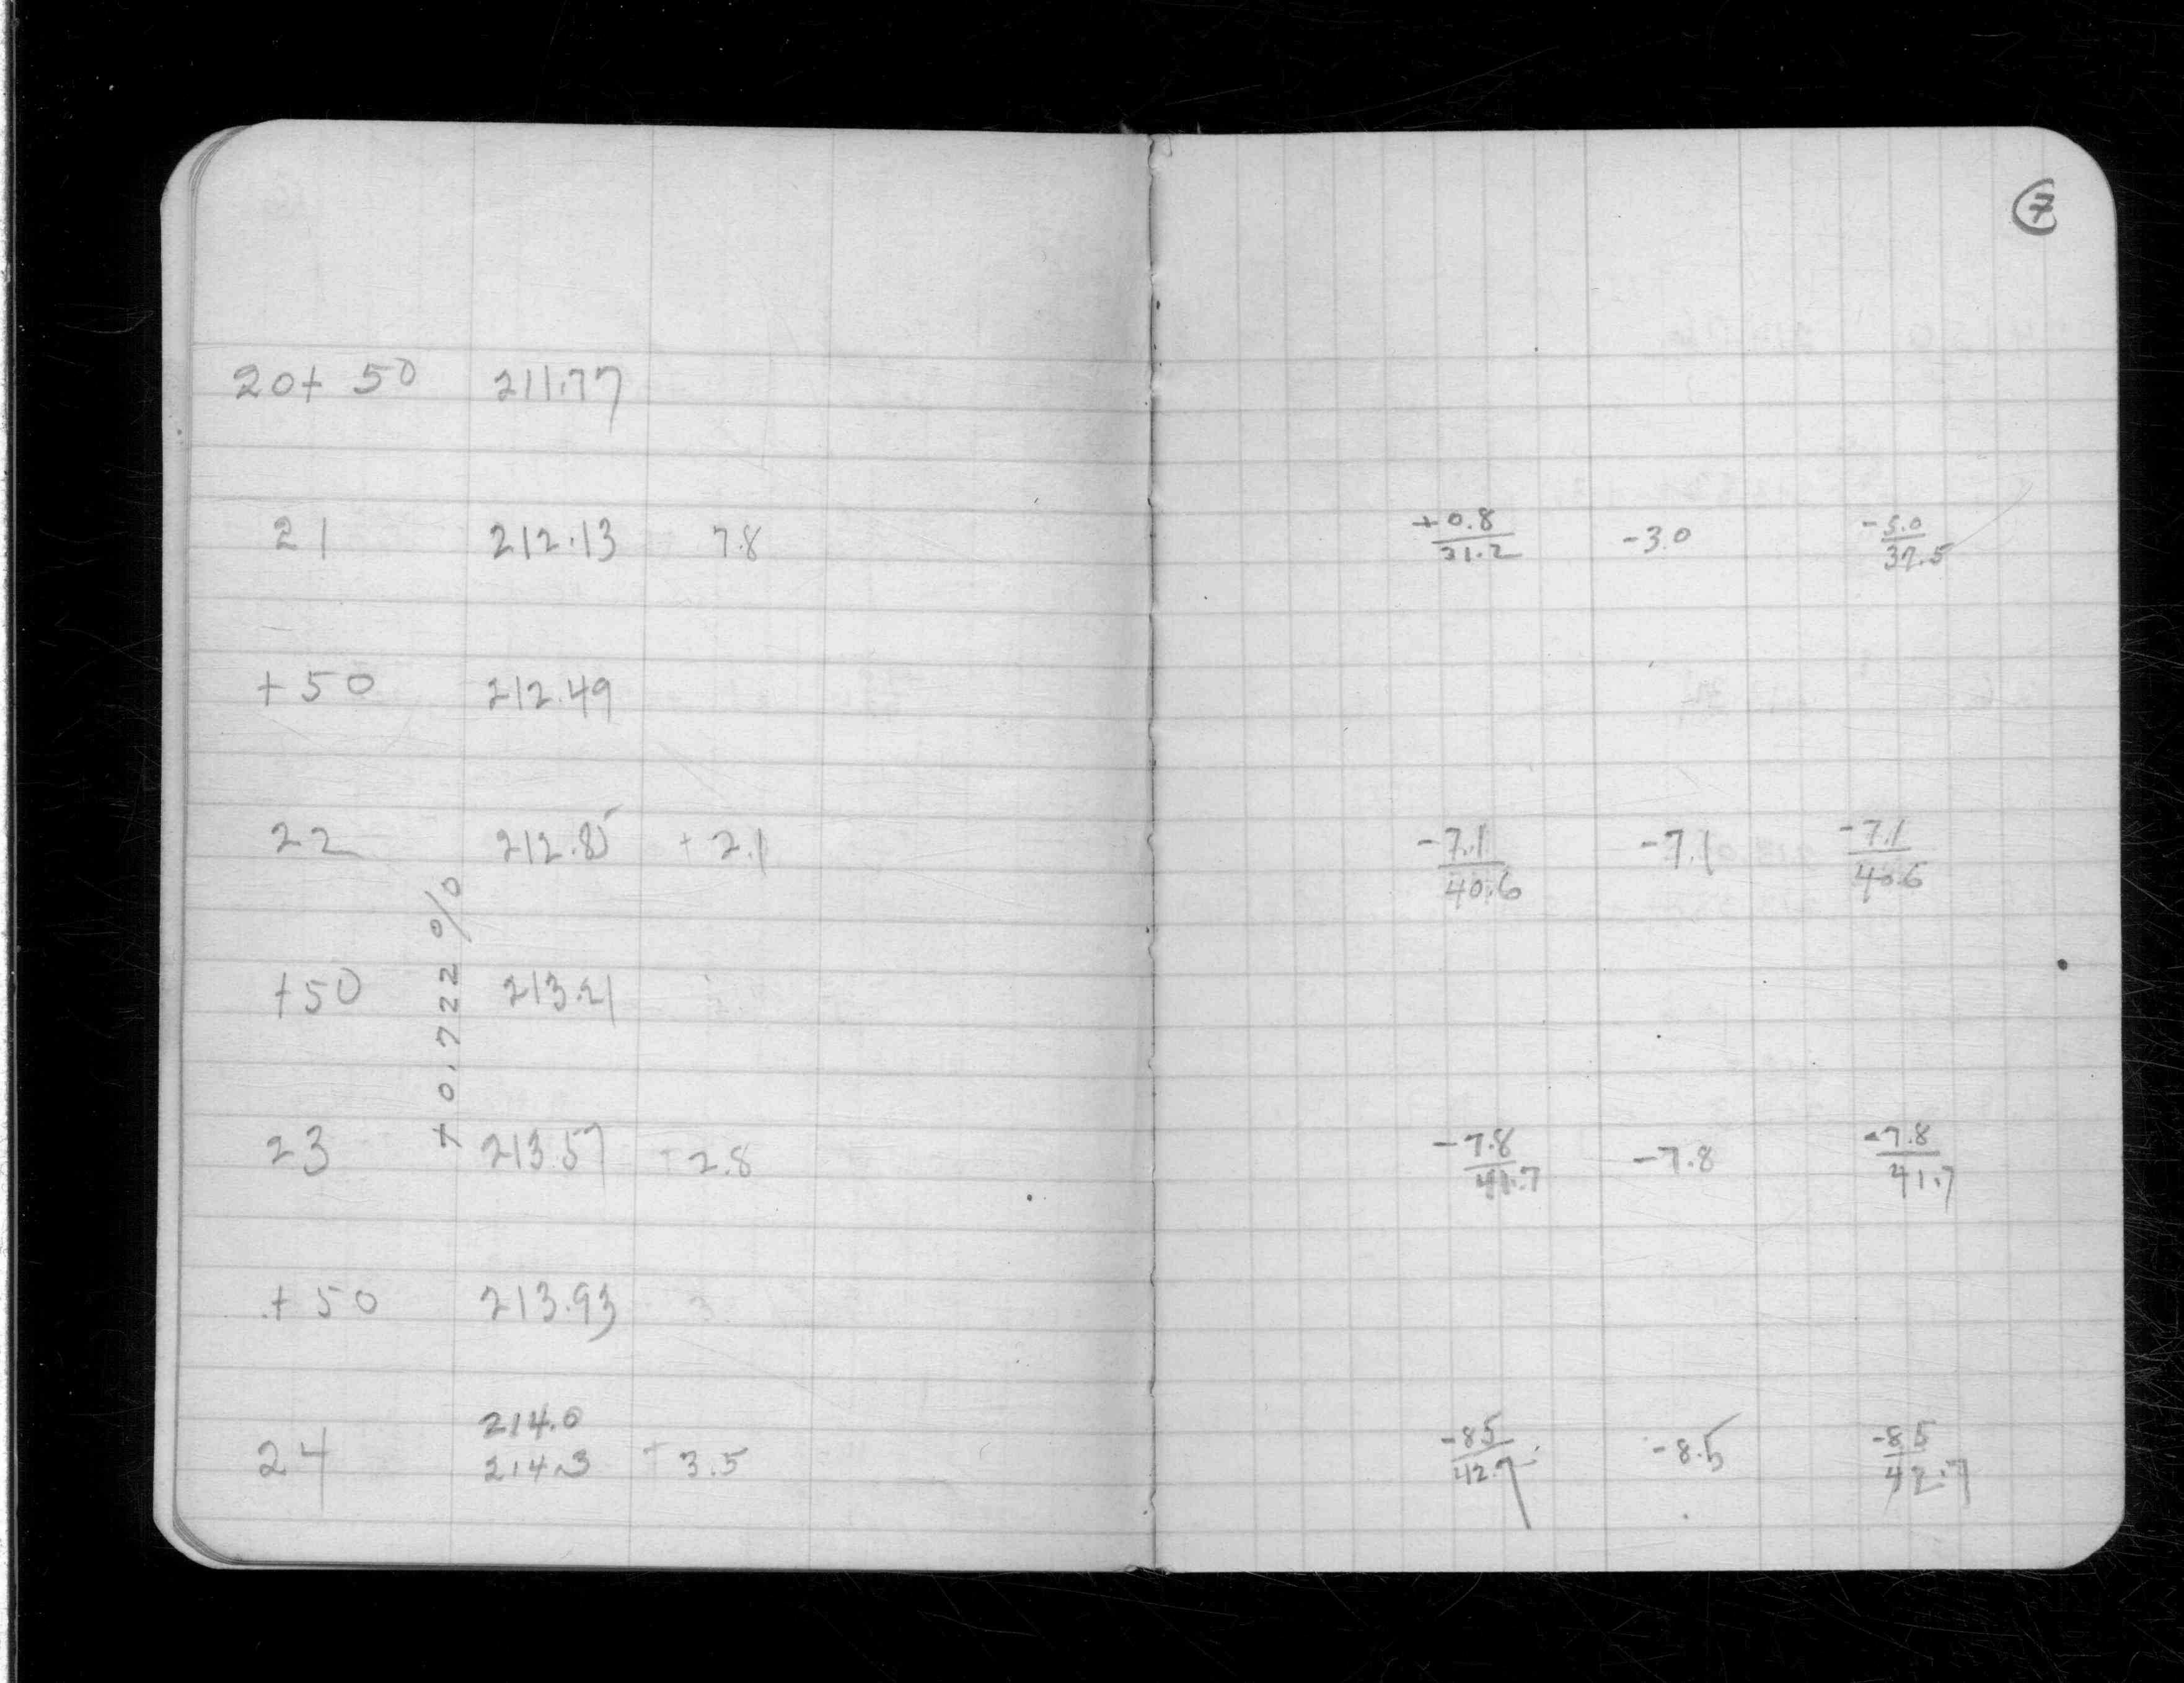 7
20+50 211.77
21 212.13 7.8 +0.8/31.2 -3.0 -5.0/37.5
+50 212.49
22 212.85 +2.1 -7.1/40.6 -7.1 -7.1/40.6
+50 213.21
+0.722%
23 213.57 -2.8 -7.8/41.7 -7.8 -7.8/41.7
+50 213.93
214.0
24 214.3 3.5 -8.5/42.7 -8.5 -8.5/42.7